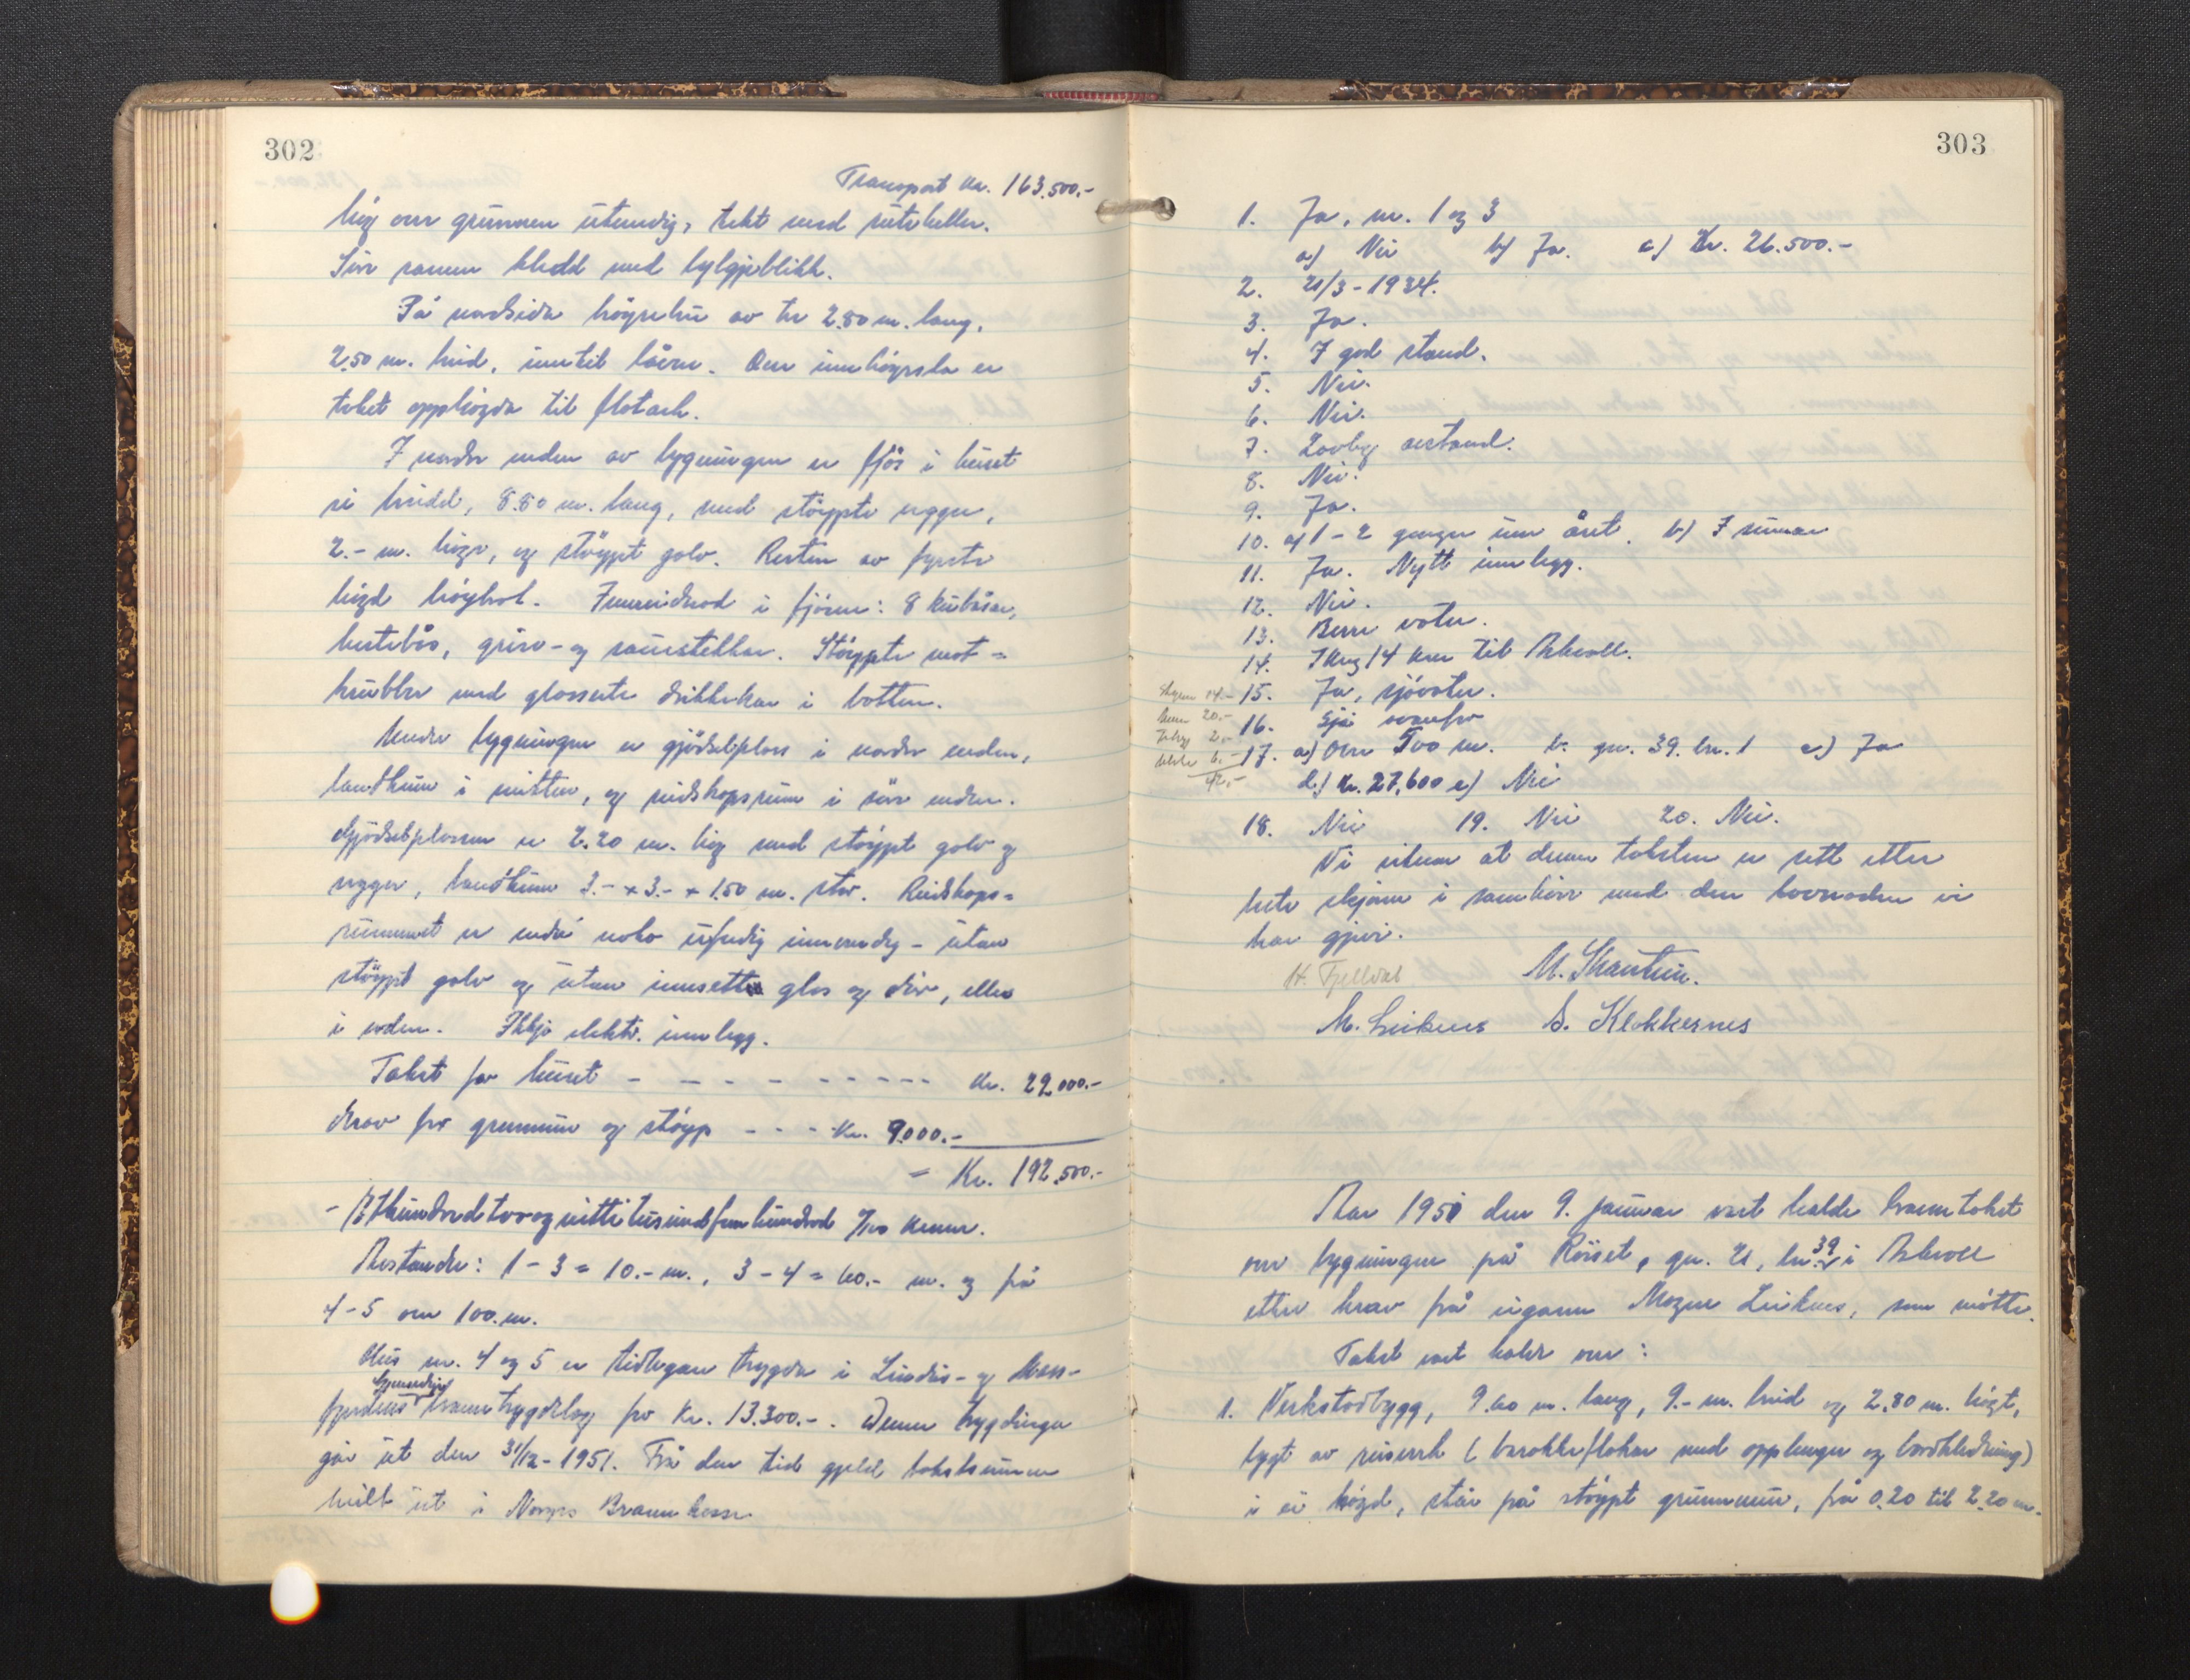 302
Transport kr. 163.500.-
høg over grunnen utvendig, tekt med rutehellar.
Sør rommen kledd med bylgjeblikk.
På nordsida høgrehus av tre 2.80 m. lang,
2.50 m. breid, inntil låven. Over innhøyrsla er
teket opphøgda til flotark.
I nordre enden av bygningen er fjøs i huset
si breidd, 8.80 m. lang, med støypte veggar,
2.- m. høge, og støypt golv. Resten av fyrste
høgd høyhol. Innreidnad i fjøsen: 8 kubåsar,
hestebås, grise- og sauestekkar. Støypte mat-
krubber med glasserte drikkekar i botten.
Under bygningen er gjødselplass i nordre enden,
landkum i midten, og reidskapsrum i søre enden.
Gjødselplassen er 2.20 m. høg med støypt golv og
veggar, landkum 3.- x 3.- x 1.50 m. stor. Reidskaps-
rummet er endå noko uferdig innvendig - utan
støypt golv og utan innsette glas og dør, elles
i orden. Ikkje elektr. innlegg.
Takst for huset - - - - - - - - - - kr. 29.000.-
Herav for grunnmur og støyp - - - kr. 9.000.-
= Kr. 192.500.-
- Etthundredtvoognittitusundfemhundred 0/100 kroner.
Avstandar: 1 - 3 = 10.- m., 3 - 4 = 60.- m. og frå
4 - 5 over 100. m.
Hus nr. 4 og 5 er tidlegare trygda i Lindås- og Mas-
fjordens gjensidige branntrygdelag for Kr. 13.300.-. Denne trygdinga
går ut den 31/12 - 1951. Frå den tid gjeld takstsummen
heilt ut i Norges Brannkasse.
303
1. Ja, nr. 1 og 3
a) Nei b) Ja. c) Kr. 26.500.-
2. 21/3 - 1934.
3. Ja.
4. I god stand.
5. Nei.
6. Nei.
7. Lovleg avstand.
8. Nei.
9. Ja.
10. a) 1 - 2 gonger um året. b) I sumar
11. Ja. Nytt innlegg.
12. Nei.
13. Berre vatn.
14. Ikring 14 km til Askvoll.
15. Ja, sjøvatn.
16. Sjå ovanfor
17. a) Over 500 m. b. gn. 39. bn. 1 c) Ja
d) kr. 27,600 e) Nei
14.-
20.-
2.-
6.-
42,-
18. Nei 19. Nei 20. Nei.
Vi vitnar at denne taksten er sett etter
beste skjønn i samhøve med den kovnaden vi
har gjevi.
H. Fjelldal M. Skantun.
M. Leiknes S. Klokkernes
Aar 1951 den 9. januar vart halde branntakst
over bygningar på Røiset, gn. 21, bn. 39 i Askvoll
etter krav frå eigaren Mogne Leiknes, som møtte.
Takst vart halde over:
1. Verkstadbygg, 9.60 m. lang, 9.- m. breid og 2.80 m. høgt,
bygt av reisverk (barakkeflakar med opplengjer og bordkledning)
i ei høgd, står på støypt grunnmur, frå 0.20 til 2.20 m.